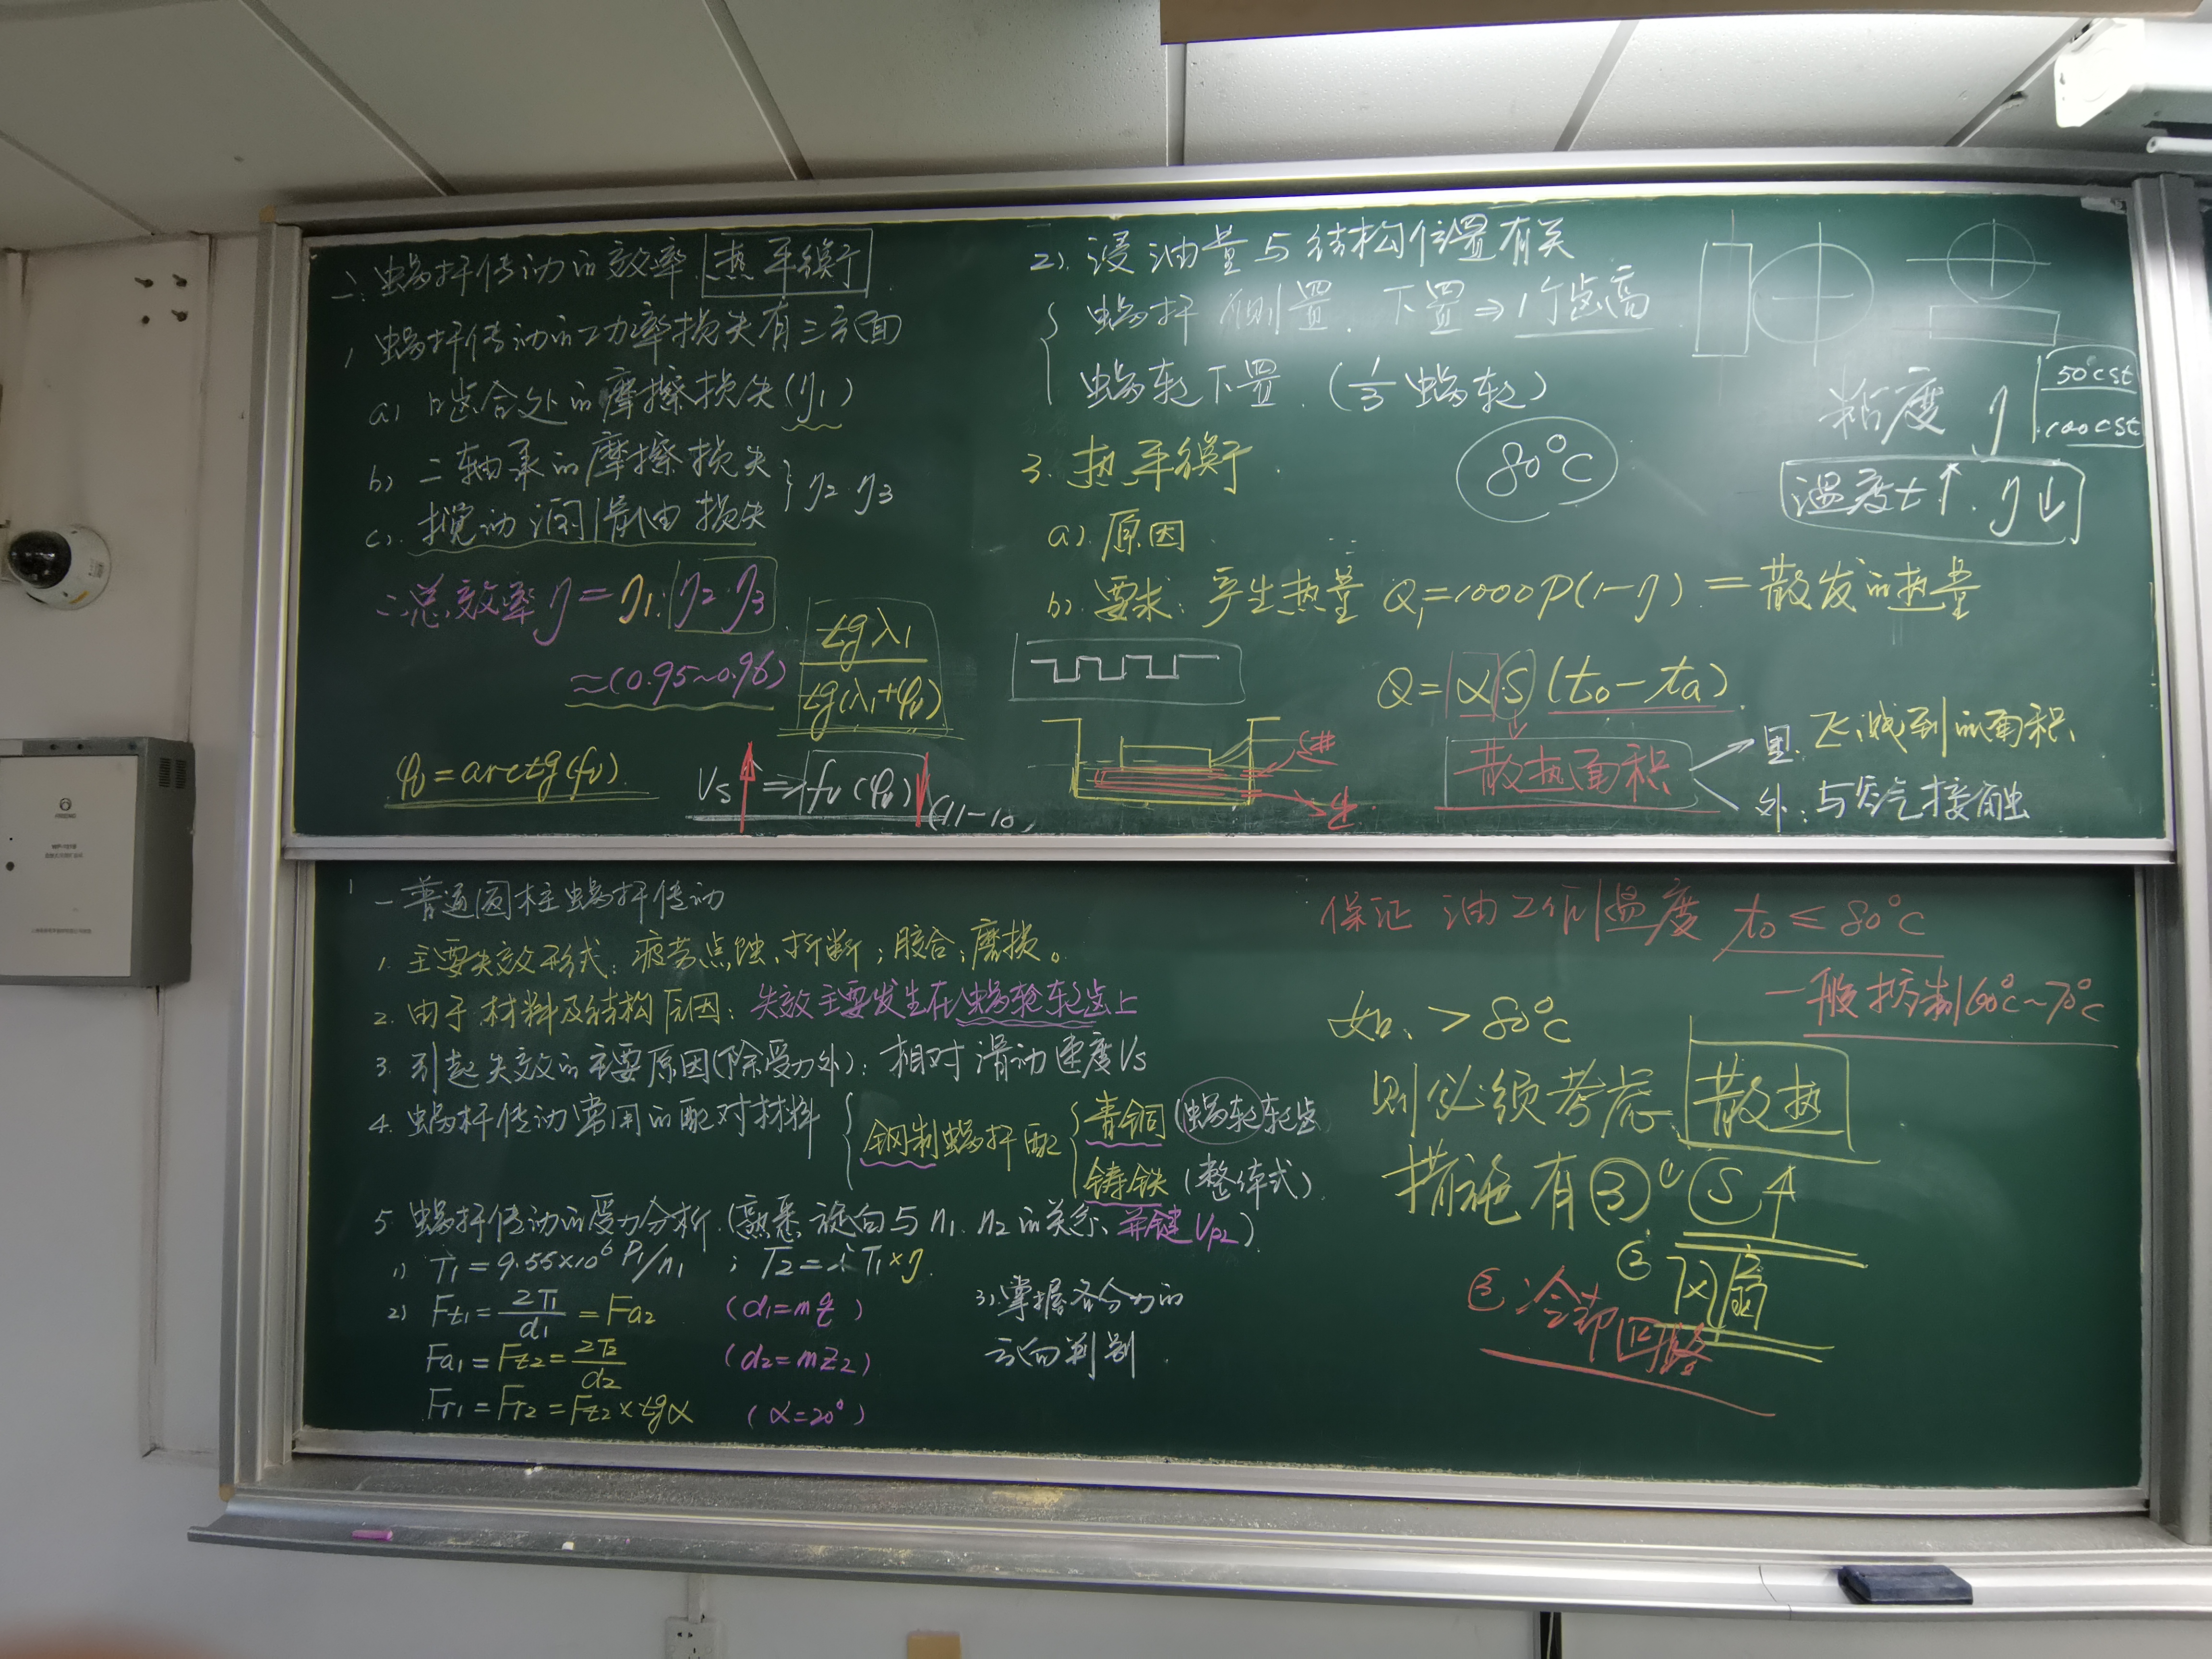 二. 蜗杆传动的效率. 热平衡
1, 蜗杆传动的功率损失有三方面
a) 啮合处的摩擦损失(η1)
b) 二轴承的摩擦损失
c). 搅动润滑油损失
} η2·η3
∴总效率η=η1·η2·η3
≈(0.95~0.96) tgλ1/tg(λ1+φv)
φv=arctg(fv)
Vs↑ => fv(φv)↓ (11-10,
2). 浸油量与结构位置有关
{ 蜗杆侧置. 下置⇒1个齿高
蜗轮下置. (1/3蜗轮)
粘度 η 50°cst
100cst
温度t↑. η↓
3. 热平衡. 80°C
a). 原因
b). 要求: 产生热量 Q1=1000P(1-η) = 散发的热量
Q=α·S(t0-ta)
散热面积
里: 飞溅到的面积
外: 与空气接触
进
出
一普通圆柱蜗杆传动
1. 主要失效形式: 疲劳点蚀、折断; 胶合; 磨损。
2. 由于材料及结构原因: 失效主要发生在蜗轮轮齿上
3. 引起失效的主要原因(除受力外): 相对滑动速度Vs
4. 蜗杆传动常用的配对材料 { 钢制蜗杆配 { 青铜(蜗轮轮齿
铸铁(整体式)
5. 蜗杆传动的受力分析.(熟悉旋向与n1. n2的关系、并键Vp2)
1) T1=9.55×10⁶ P1/n1 ; T2=iT1×η
2) Ft1=2T1/d1=Fa2 (d1=mq)
Fa1=Ft2=2T2/d2 (d2=mz2)
Fr1=Fr2=Ft2×tgα (α=20°)
3). 掌握各分力的
方向判别.
保证 油工作温度 t0≤80°C
一般控制60°C~70°C
如. >80°C
则必须考虑 散热
措施有③ ① S↑
② 风扇
③. 冷却回路